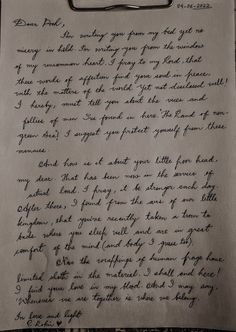 04-06-2022
Dear Pooh,
I'm writing you from my bed yet no
misery is held. I'm writing you from the window
of my uncommon heart. I pray to my Lord, that
these words of affection find your soul in peace,
with the matters of the world. Yet not disclosed well!
I hereby, must tell you about the vices and
follies of men I've found in here 'The Land of non-
green Area'! I suggest you protect yourself from these
And how is it about your little poor head,
my dear. That has been now in the service of
actual Lord. I pray, it be stronger each day.
After those, I found from the airs of our little
kingdom, that you've recently taken a town to
bide where you sleep well and are in great
comfort of the mind (and body I guess to).
Now the wrappings of human frags have
limited doth in the material. I shall end here!
I find your love in my blood. And I may say,
Whenever we are together is where we belong.
In love and light
C. Robin ♥